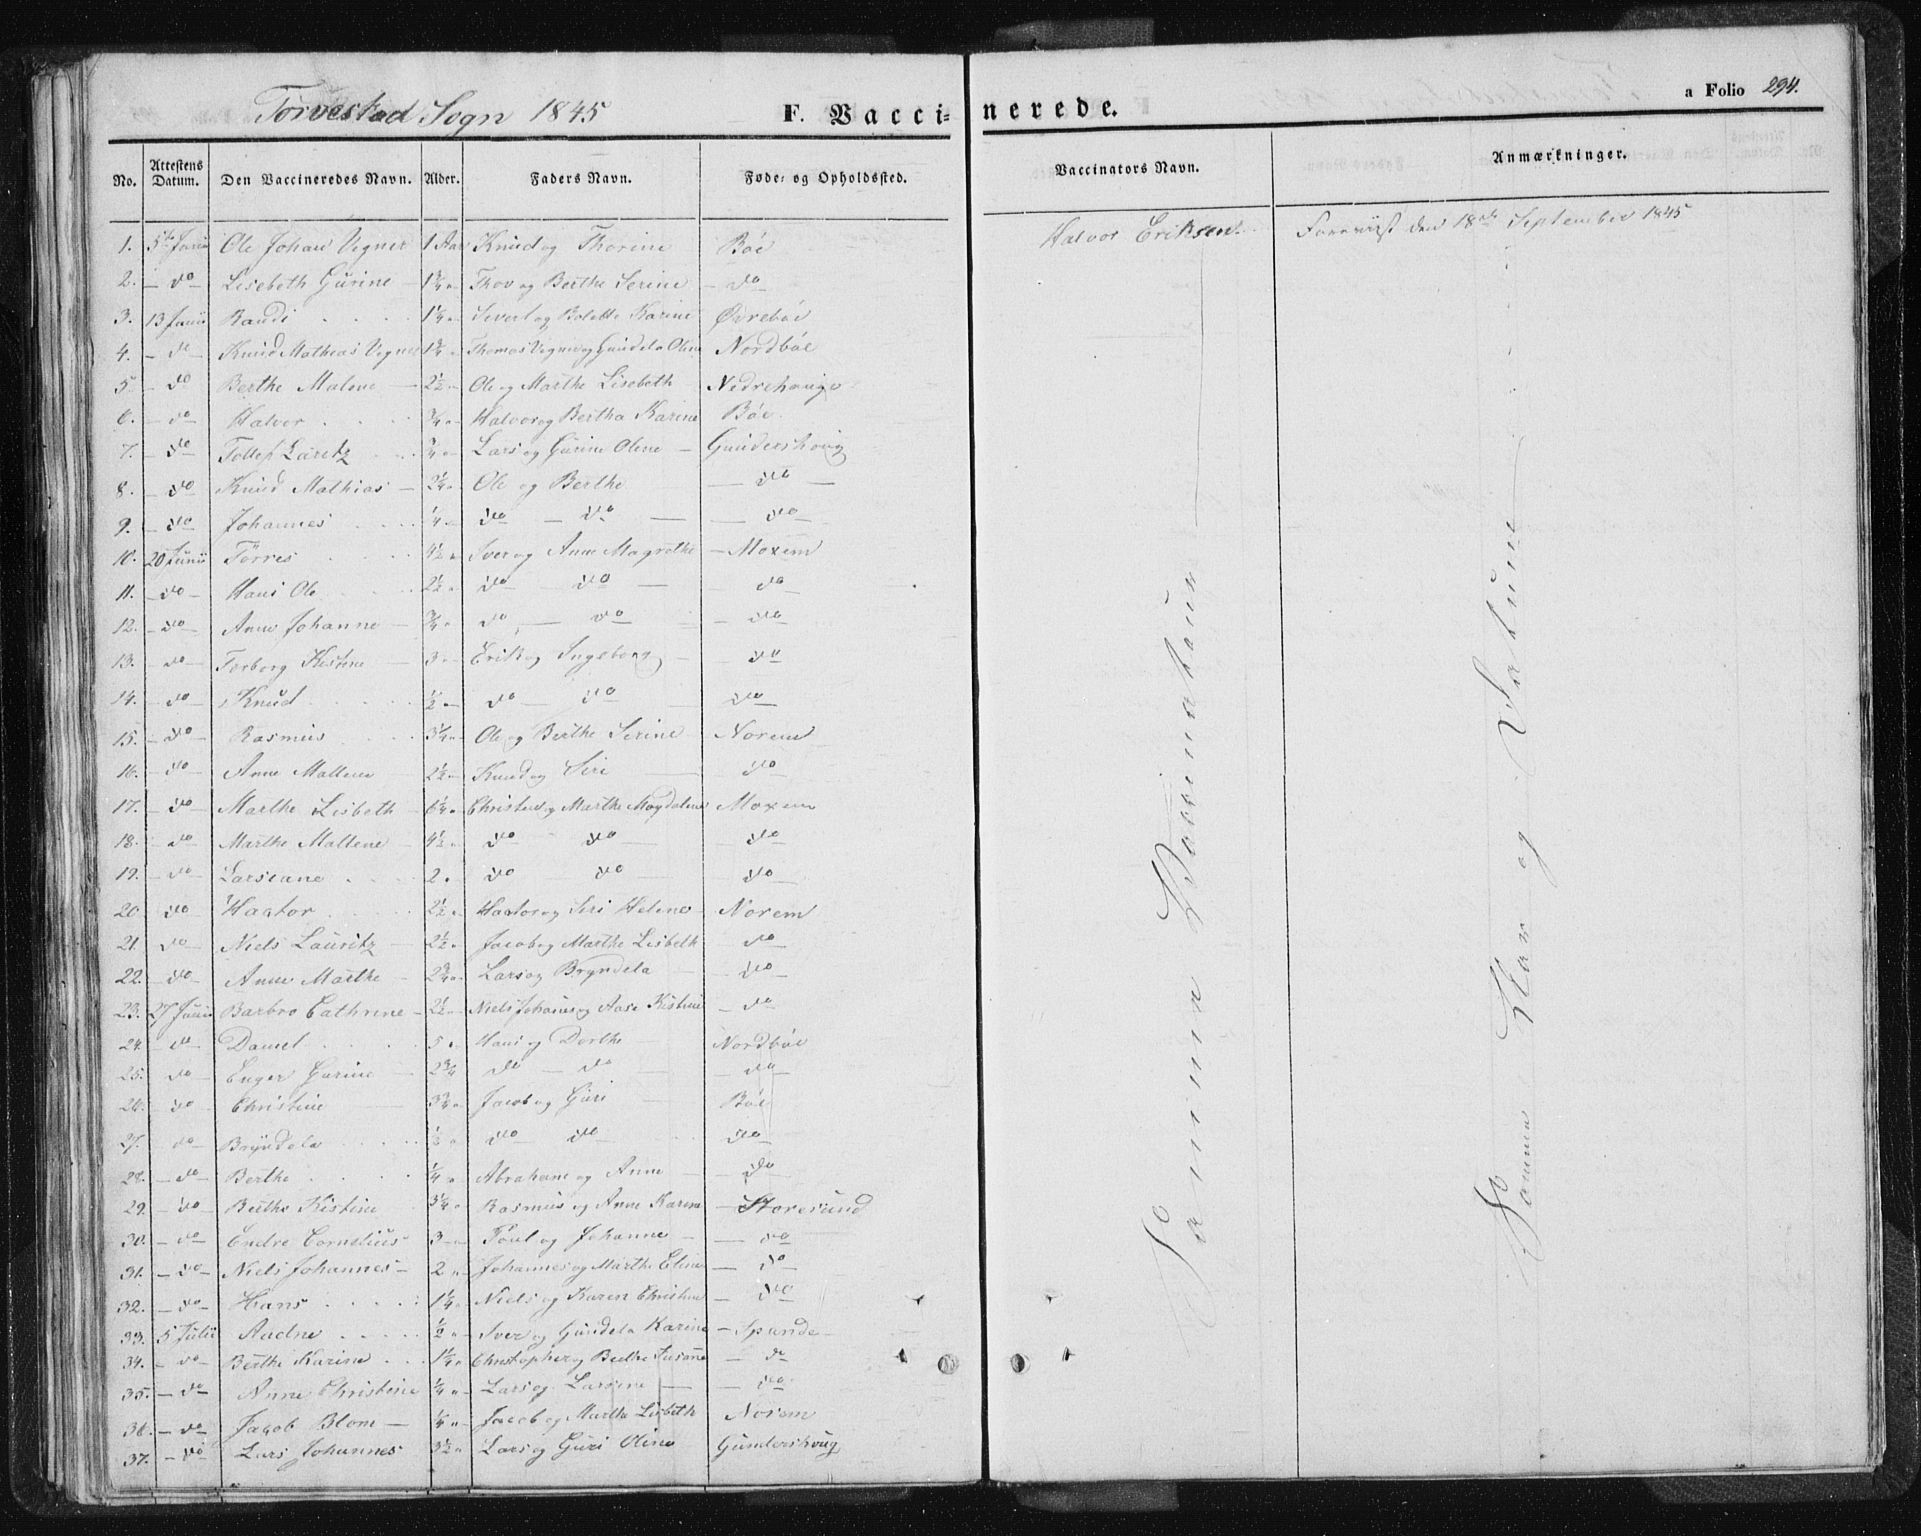 Torvestad Sogn 1845 F. Vacci- nerede. a Folio 294.
No. Attestens Datum. Den Vaccineredes Navn. Alder. Faders Navn. Føde- og Opholdssted. Vaccinators Navn. Anmærkninger.
1. 5te Junii Ole Johan Vegner 1 Aar Knud og Thorine Böe Halvor Eriksen. Foreviist den 18de September 1845
2. - do Lisebeth Gurine - 1 3/4 " Thov og Berthe Serine - do
3. 13 Junii Randi 1 1/4 " Sivert og Bolette Karine Øvreböe
4. - do Knud Mathias Vegner 1 3/4 " Thomas Vegner og Gundela Oline Nordböe
5 - do Berthe Malene - 2 1/2 " Ole og Marthe Lisebeth Nedrehauge
6. - do Halvor 3/4 " Halvor og Bertha Karine Böe
7. - do Tollef Laritz 3/4 " Lars og Gurine Olene - Gundershoug
8. - do Knud Mathias - 2 1/4 " Ole og Berthe - do -
9. - do Johannes 1/4 " do - do - - do -
10. 20 Junii Törres 4 1/2 " Sver og Anne Magrethe - Moxem
11. - do - Hans Ole 2 1/2 " do - do - do
12. - do - Anne Johanne - 3/4 " do - do - do -
13. - do - Torborg Kistine 3 " Erik og Ingeborg - - do
14. - do - Knud 1/2 " do - do - do -
15. - do - Rasmus 3 1/4 " Ole og Berthe Serine - Norem
16. - do Anne Mallene 2 1/2 " Knud og Siri - do
17. - do Marthe Lisbeth - 6 1/4 " Christen og Marthe Magdalene Moxem
18. - do Marthe Maltene - 4 1/2 " do do - - do -
19. - do - Larseane 2 " do do - do
20 do - Hactor 2 1/2 " Hactor og Siri Helene - Norem
21. do - Niels Lauritz - 2 1/2 " Jacob og Marthe Lisbeth - do
22. - do - Anne Marthe - 2 3/4 " Lars og Bryndela - - do -
23. 27 Junii Barbro Cathrine - 2 1/2 " Niels Johannes og Aase Kistine - do -
24. - do - Daniel 5 " Hans og Dorthe Nordböe
25. do - Enger Gurine - 2 3/4 do - do - - do -
26. - do - Christine 3 3/4 " Jacob og Guri Böe
27. - do - Bryndela 1/2 " do do do
28. - do - Berthe 1/4 " Abraham og Anne - do -
29. - do - Berthe Kistine 3 1/4 " Rasmus og Anne Karine - Storesund
30. - do - Endre Cornelius 3 - " Poul og Johanne - - do
31. - do - Niels Johannes - 2 " Johannes og Marthe Eline - do
32. - do - Hans 1 1/4 " Niels og Karen Christine - do
33. 5 Julii Aadne 1/2 " Sver og Gundela Karine - Spande -
34. - do - Berthe Karine 1 1/4 " Christopher og Berthe Susanne - do
35. - do Anne Christine 1/4 " Lars og Larsine - - do
36. - do Jacob Blom - 1/4 " Jacob og Martha Lisbeth Norem
37. - do Lars Johannes 3 1/2 " Lars og Guri Oline Gundershoug
Samme Vaccinateur
Samme Aar og Datum